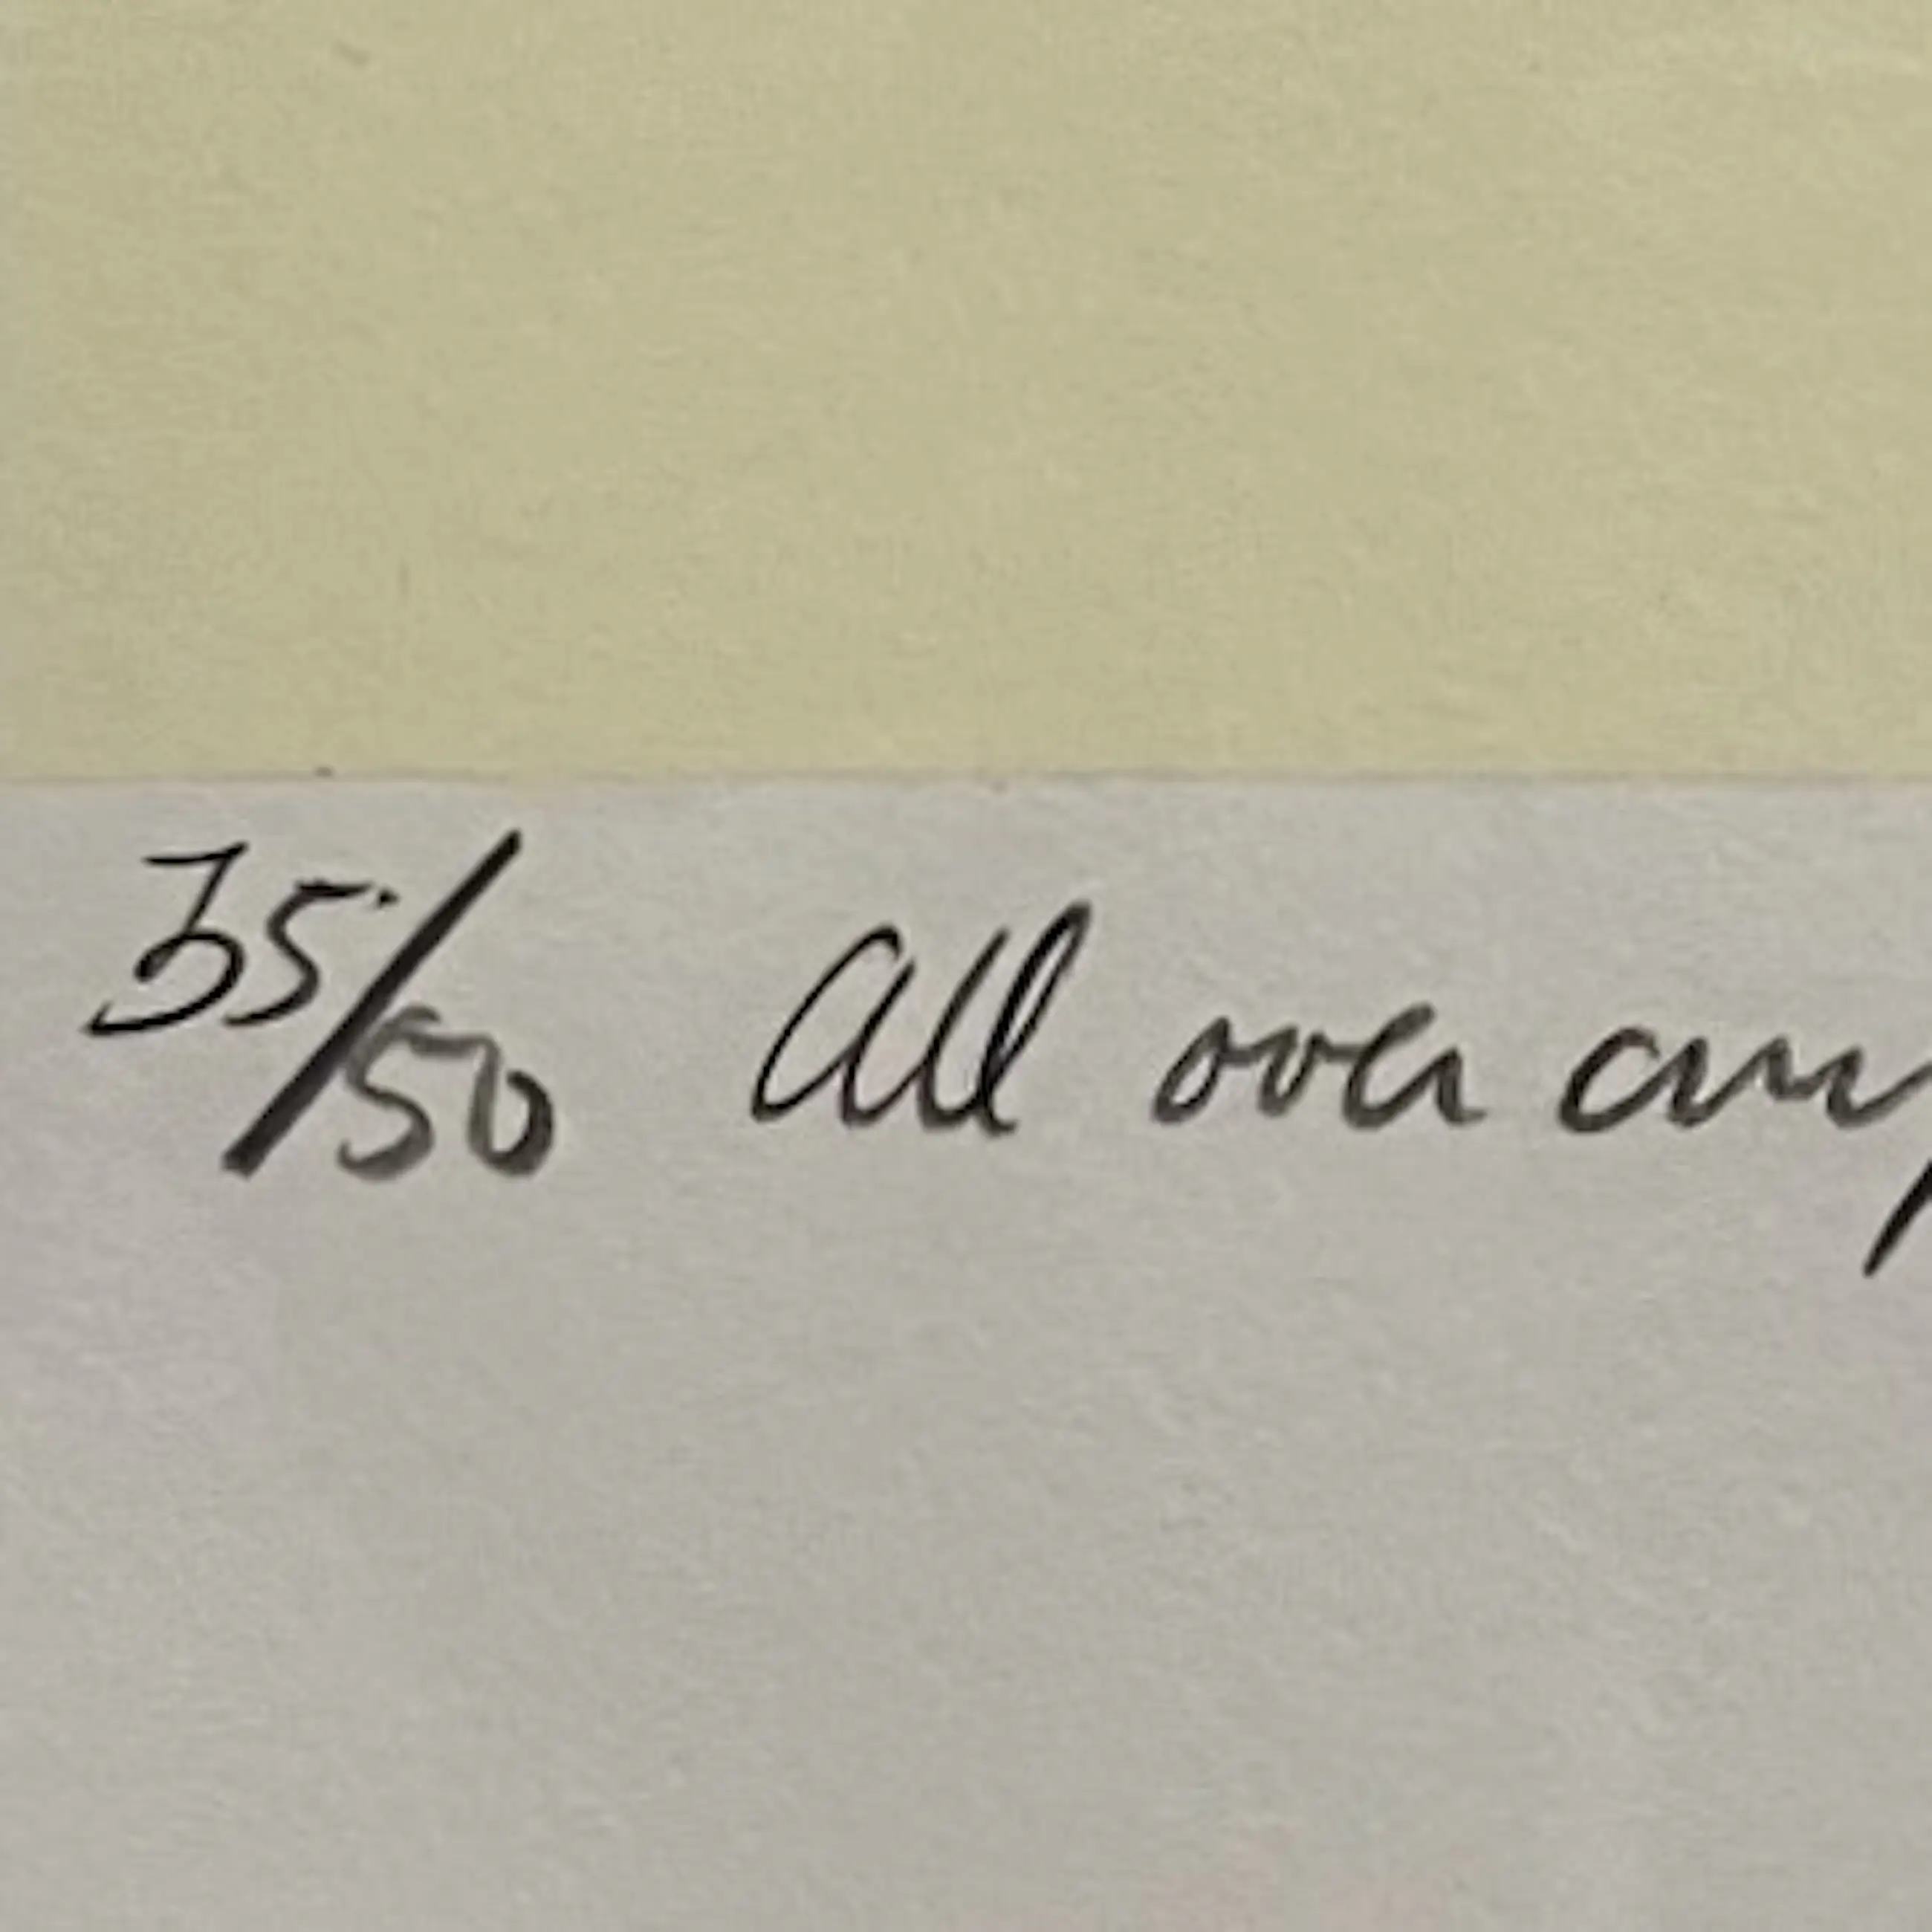 35/50 All over any